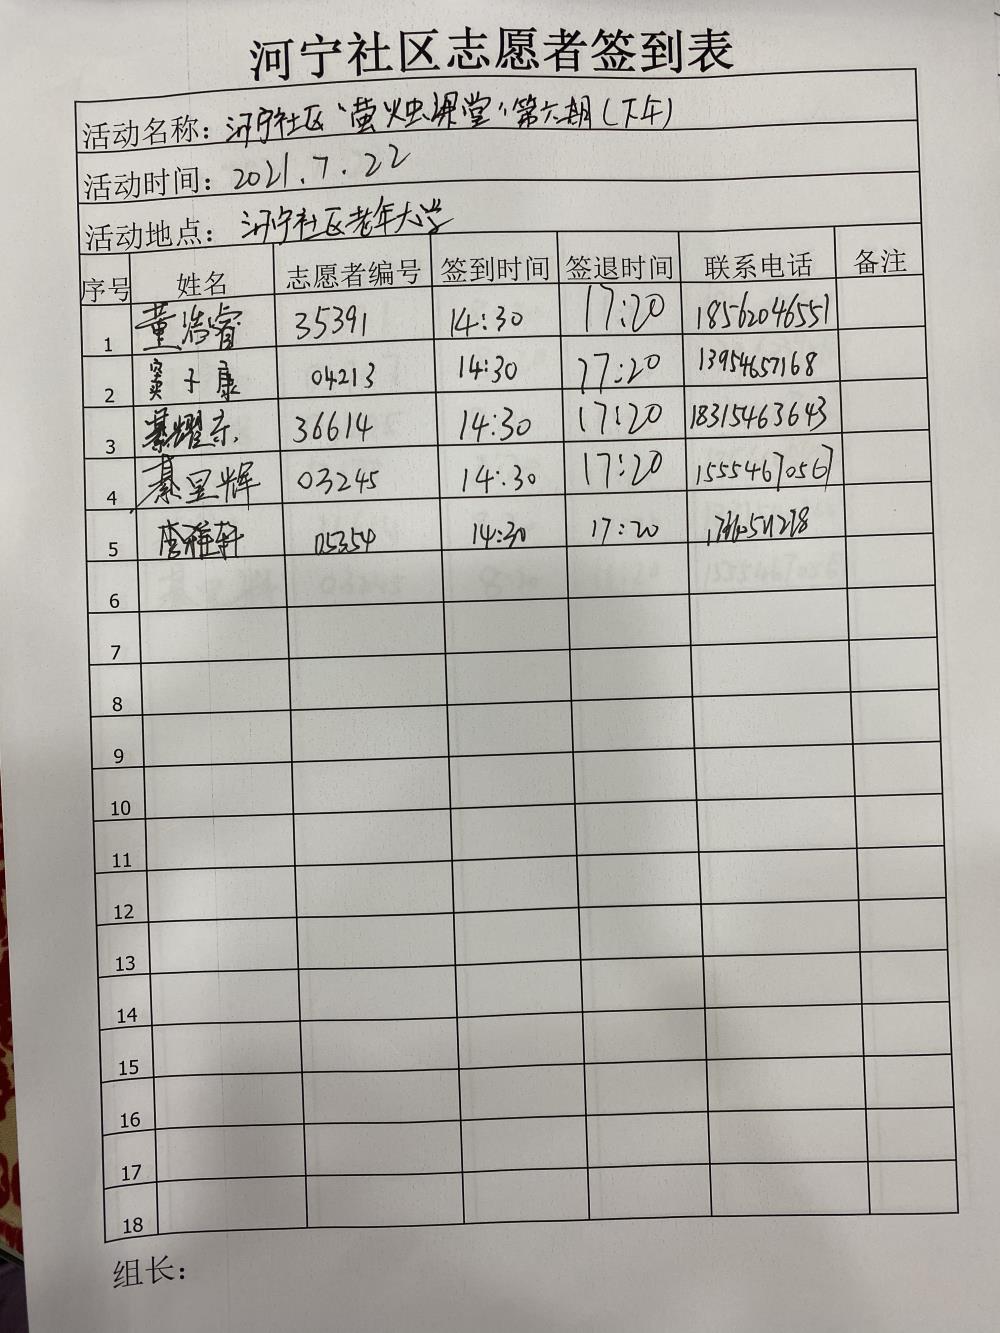 河宁社区志愿者签到表
活动名称：河宁社区"萤火虫课堂"第六期（下午）
活动时间：2021.7.22
活动地点：河宁社区老年大学
序号 姓名 志愿者编号 签到时间 签退时间 联系电话 备注
1 董浩睿 35391 14:30 17:20 18562046551
2 窦子康 04213 14:30 17:20 13954657168
3 綦耀东 36614 14:30 17:20 18315463643
4 綦呈辉 03245 14:30 17:20 15554670567
5 李雅轩 05354 14:30 17:20
6
7
8
9
10
11
12
13
14
15
16
17
18
组长：